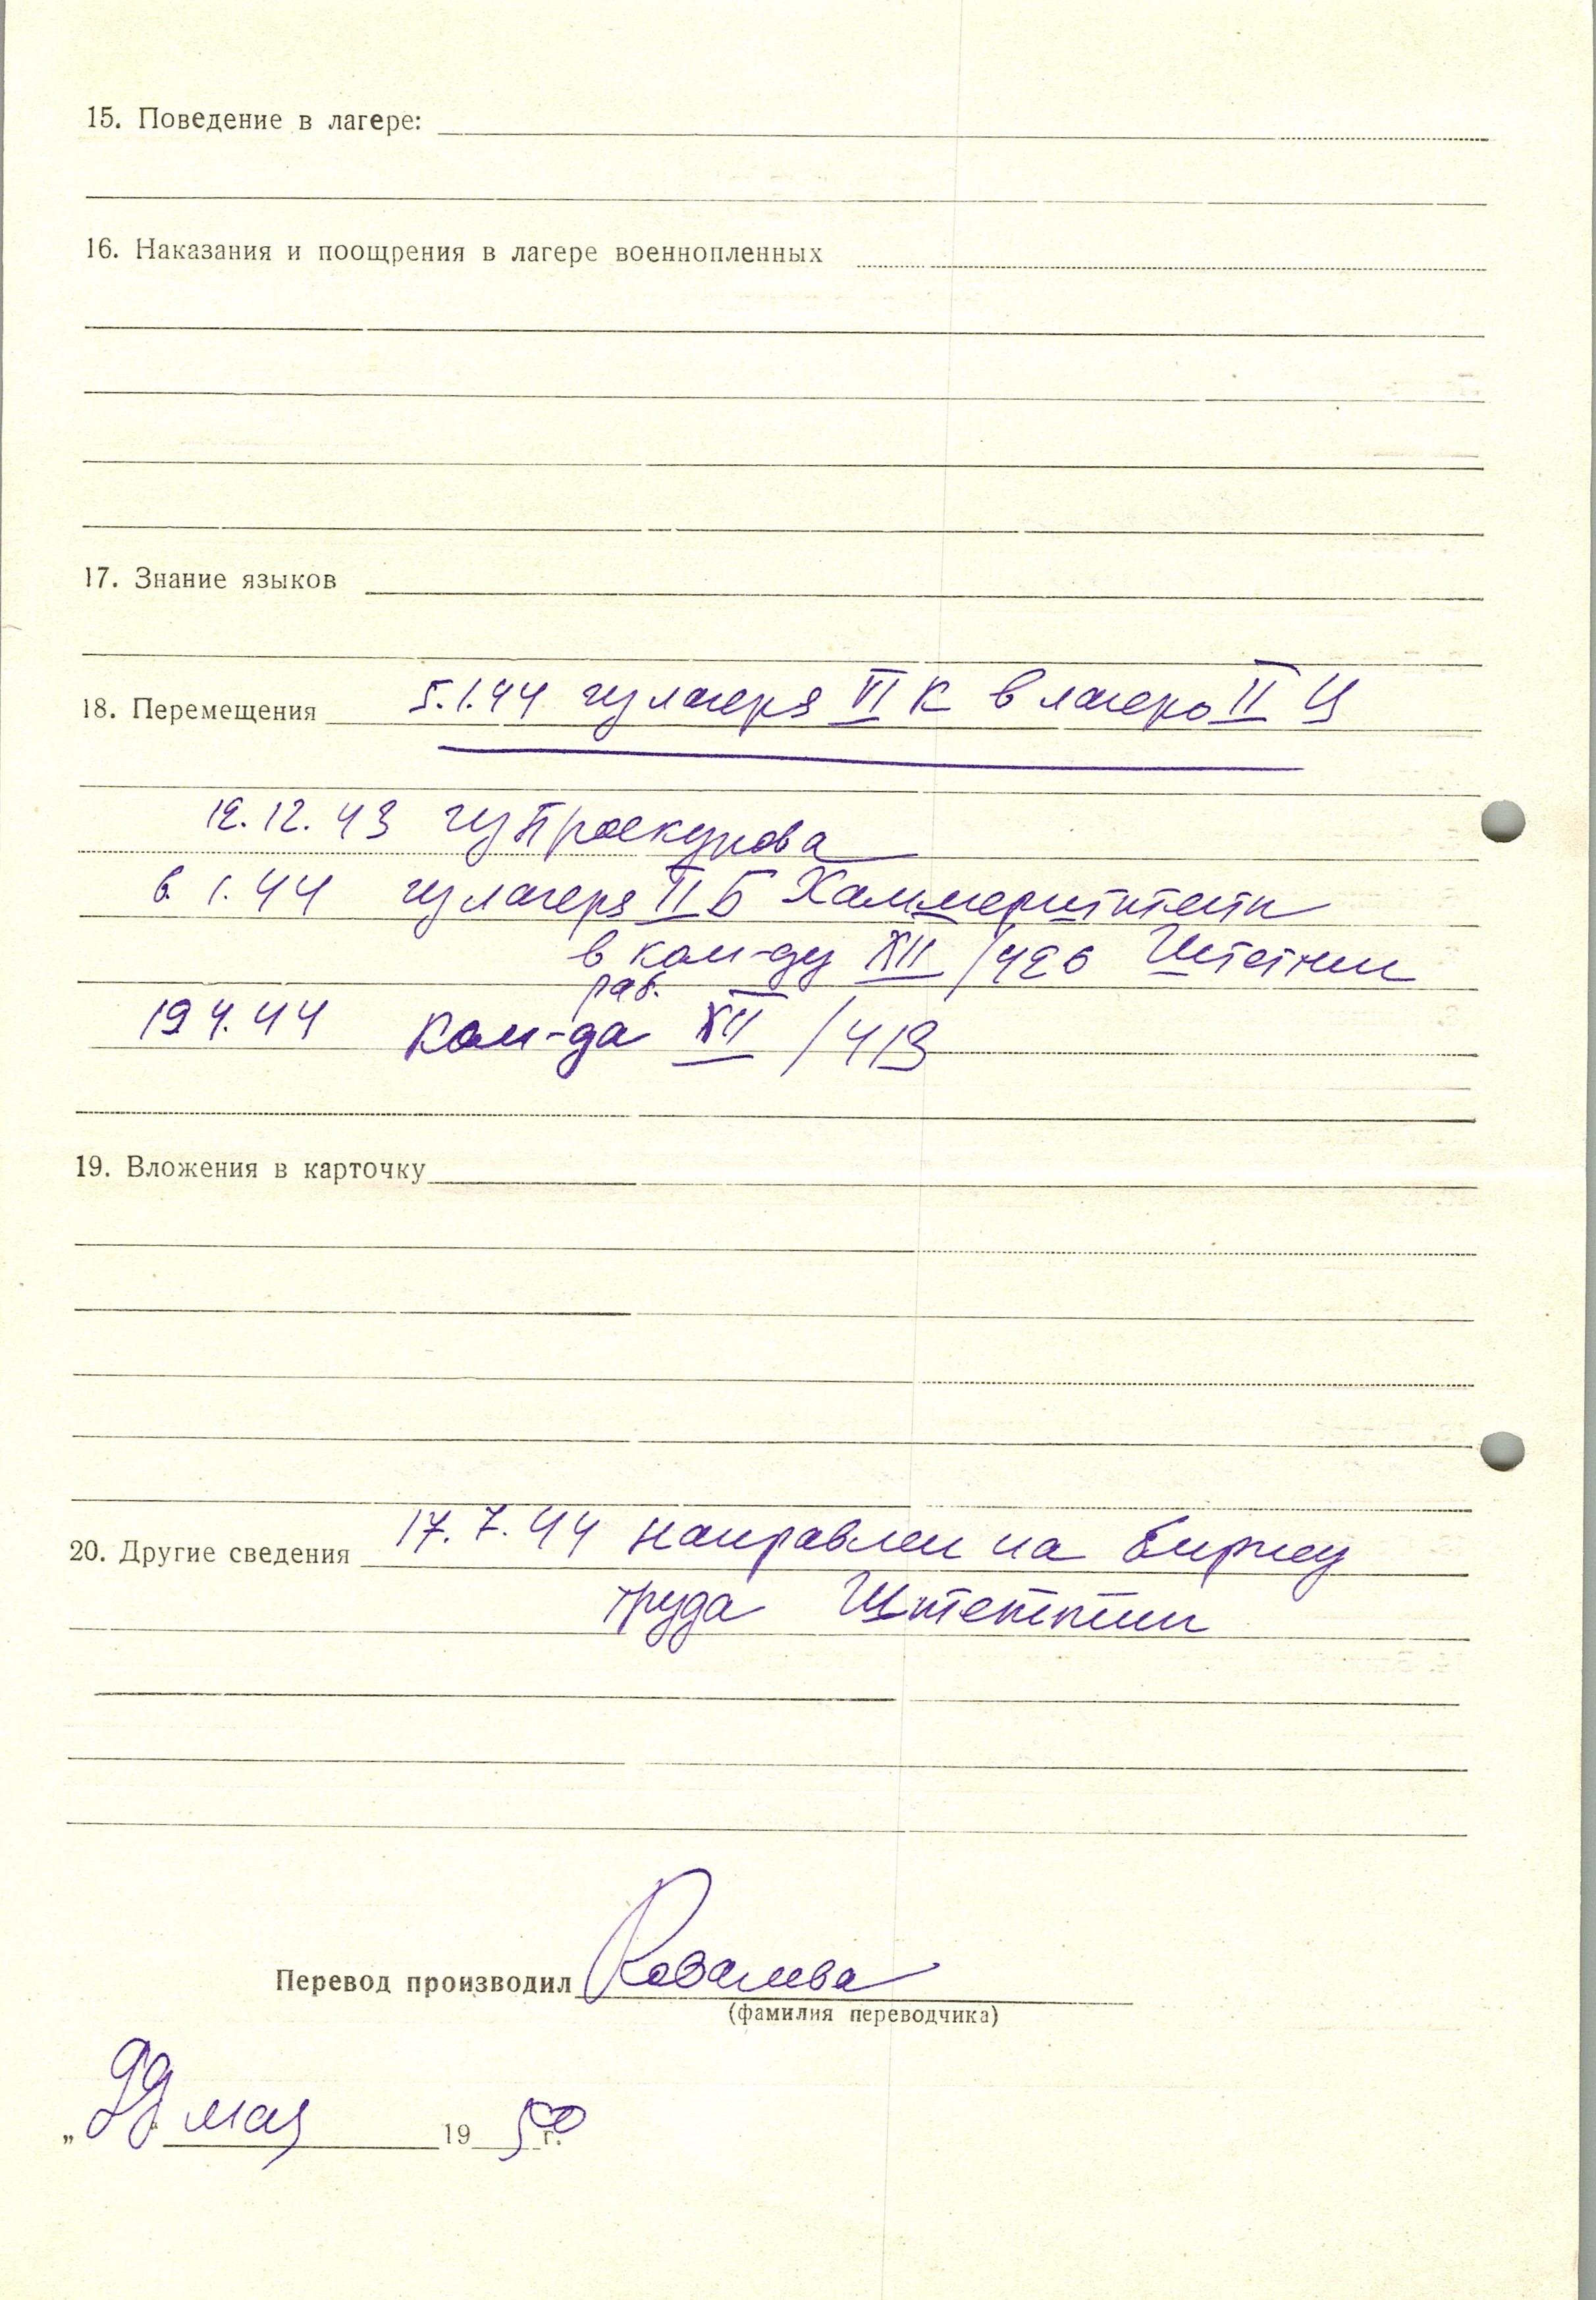 15. Поведение в лагере:
16. Наказания и поощрения в лагере военнопленных
17. Знание языков
18. Перемещения 5.1.44 из лагеря VI К в лагерь II Ц
12.12.43 из Проскурова
6. 1. 44 из лагеря II Б Хаммерштейн
в ком-ду XII /426 Штетин
раб.
19 4. 44 ком-да XII /413
19. Вложения в карточку
20. Другие сведения 17. 7. 44 направлен на биржу
труда Штеттин
Перевод производил Ковалева
(фамилия переводчика)
„ 22 “ мая 19 50 г.